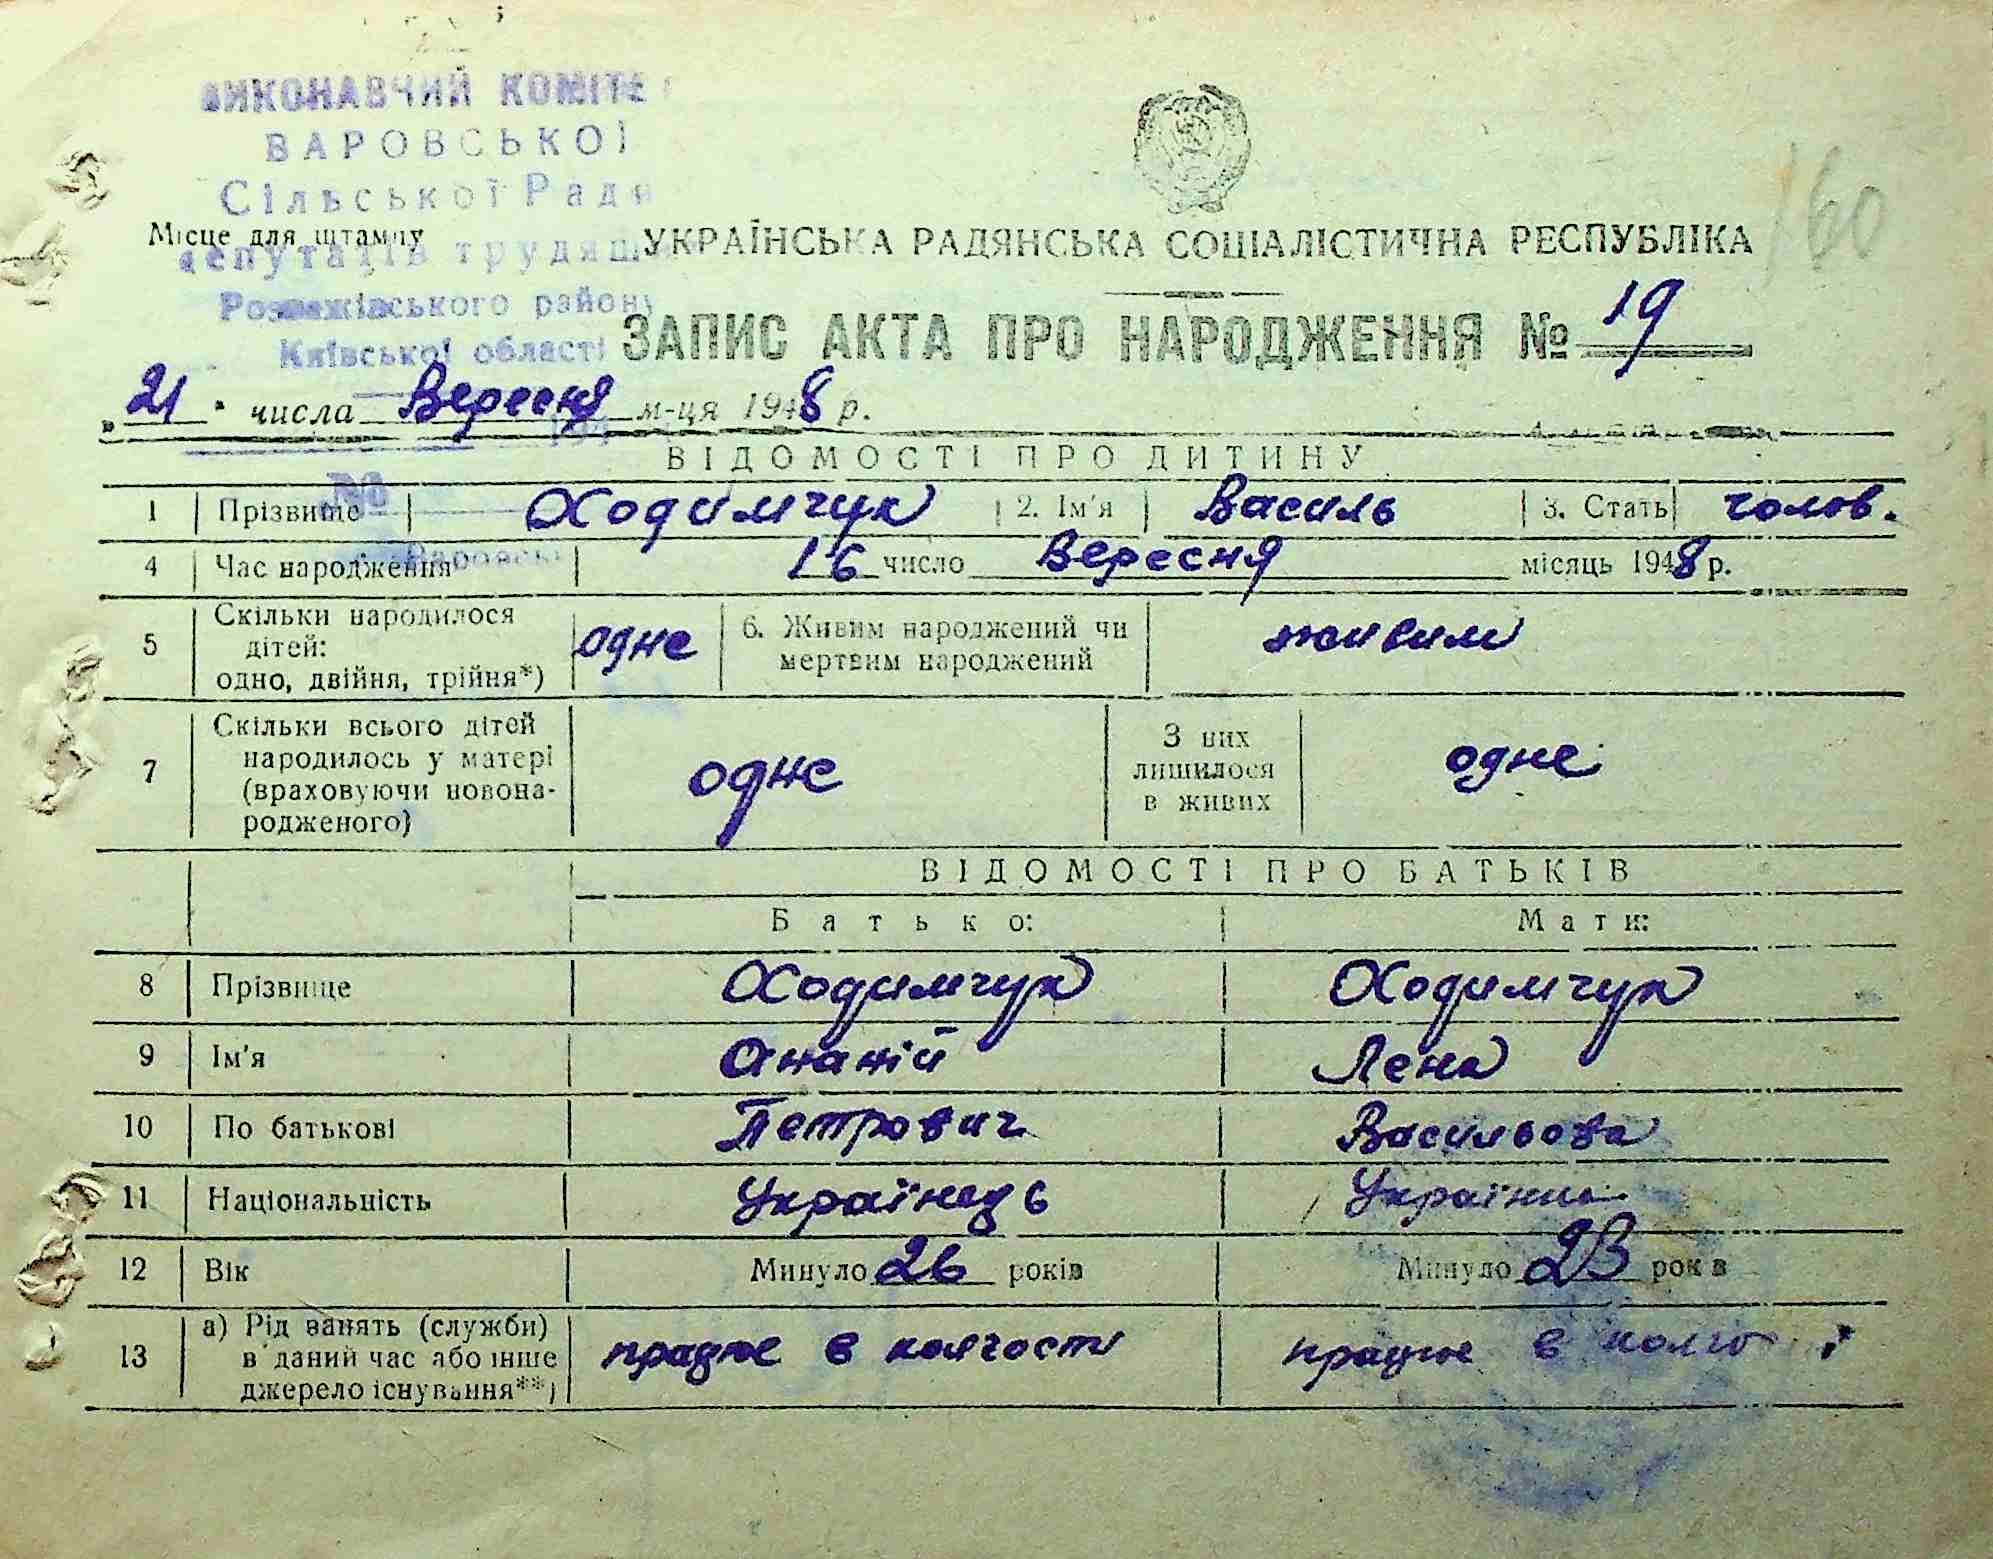 ВИКОНАВЧИЙ КОМІТЕ
ВАРОВСЬКОЇ
Сільської Ради
депутатів трудящ
Розважівського району
Київської області
160
Місце для штампу
УКРАЇНСЬКА РАДЯНСЬКА СОЦІАЛІСТИЧНА РЕСПУБЛІКА
ЗАПИС АКТА ПРО НАРОДЖЕННЯ № 19
„21" числа Вересня м-ця 1948 р.
ВІДОМОСТІ ПРО ДИТИНУ
№
1 Прізвище Ходимчук 2. Ім'я Василь 3. Стать чолов.
Варовськ
4 Час народження 16 число Вересня місяць 1948 р.
5 Скільки народилося дітей: одно, двійня, трійня*) одне 6. Живим народжений чи мертвим народжений живим
7 Скільки всього дітей народилось у матері (враховуючи новонародженого) одне З них лишилося в живих одне
ВІДОМОСТІ ПРО БАТЬКІВ
Батько: Мати:
8 Прізвище Ходимчук Ходимчук
9 Ім'я Ананій Лена
10 По батькові Петрович Васильовна
11 Національність Українець Українка
12 Вік Минуло 26 років Минуло 23 років
13 а) Рід занять (служби) в даний час або інше джерело існування**) працює в колгості працює в колго